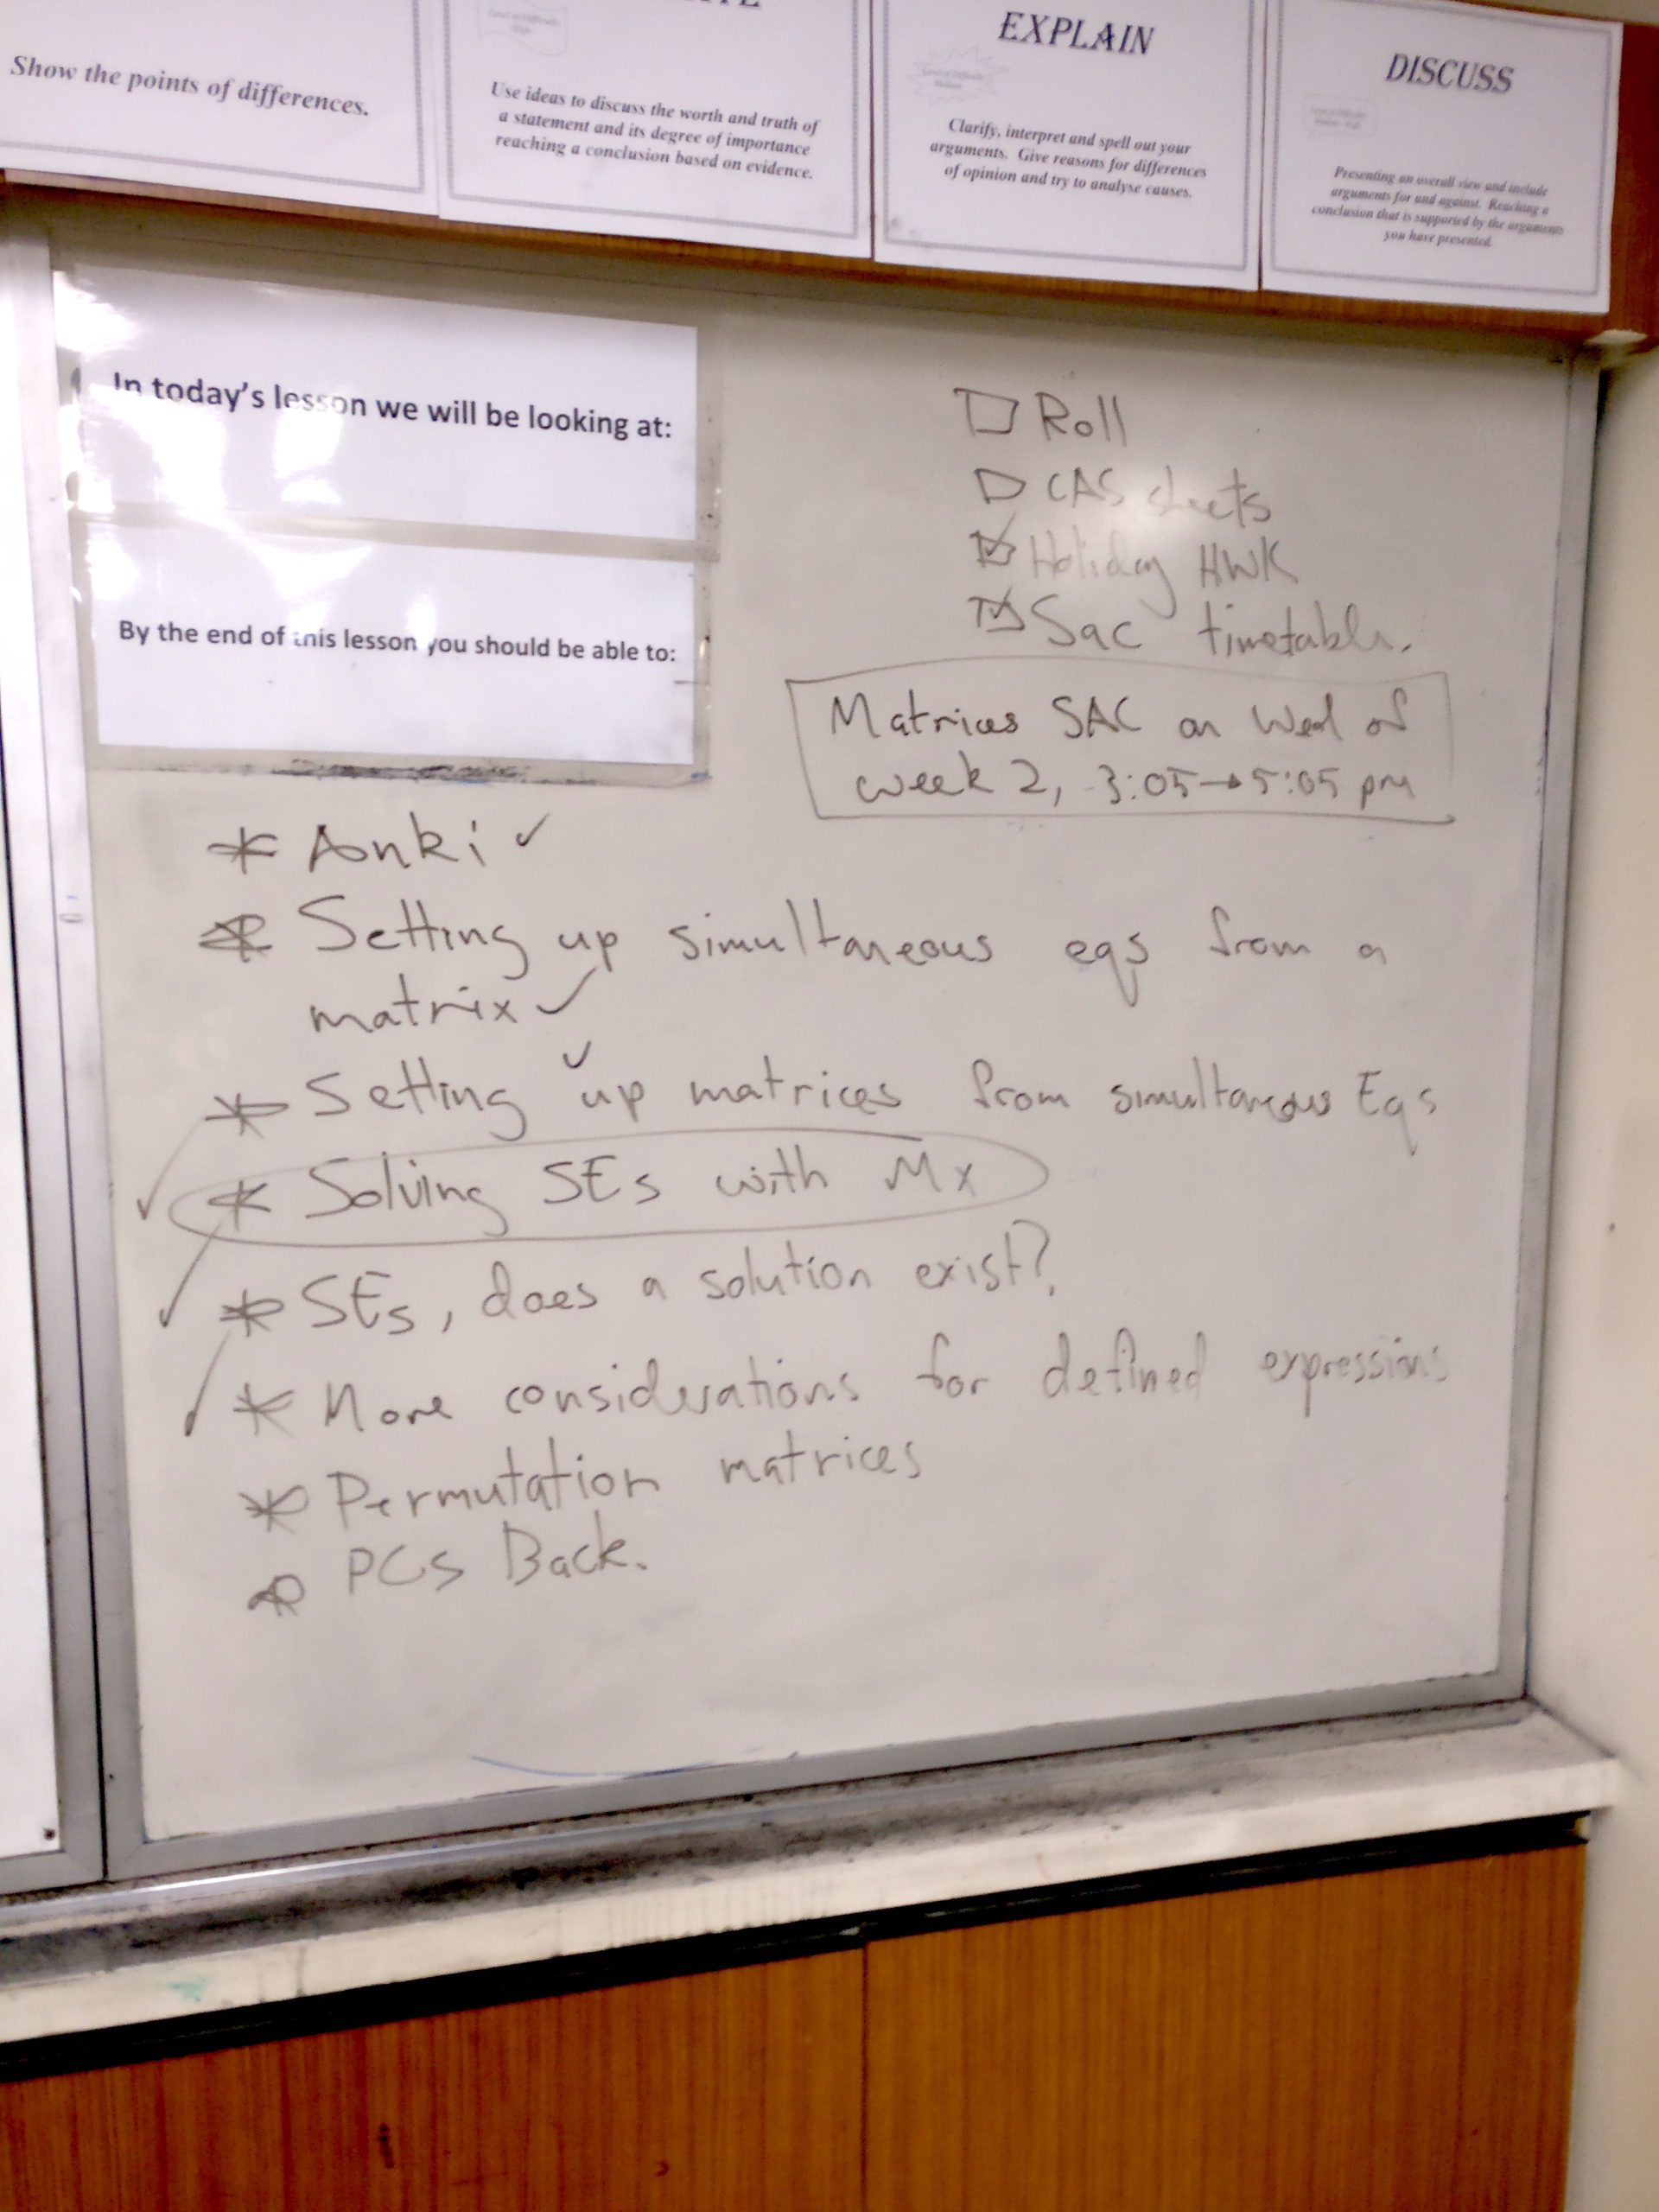 Show the points of differences.
Use ideas to discuss the worth and truth of
a statement and its degree of importance
reaching a conclusion based on evidence.
EXPLAIN
Clarify, interpret and spell out your
arguments. Give reasons for differences
of opinion and try to analyse causes.
DISCUSS
Presenting an overall view and include
arguments for and against. Reaching a
conclusion that is supported by the arguments
you have presented.
In today's lesson we will be looking at:
By the end of this lesson you should be able to:
☐ Roll
☐ CAS sheets
☑ Holiday HWK
☑ Sac timetable.
Matrices SAC on Wed of
week 2, 3:05→5:05 pm
* Anki ✓
* Setting up simultaneous eqs from a
matrix ✓
* Setting ✓ up matrices from simultaneous Eqs
* Solving SEs with Mx
* SEs, does a solution exist?
* More considerations for defined expressions
* Permutation matrices
* PCs Back.